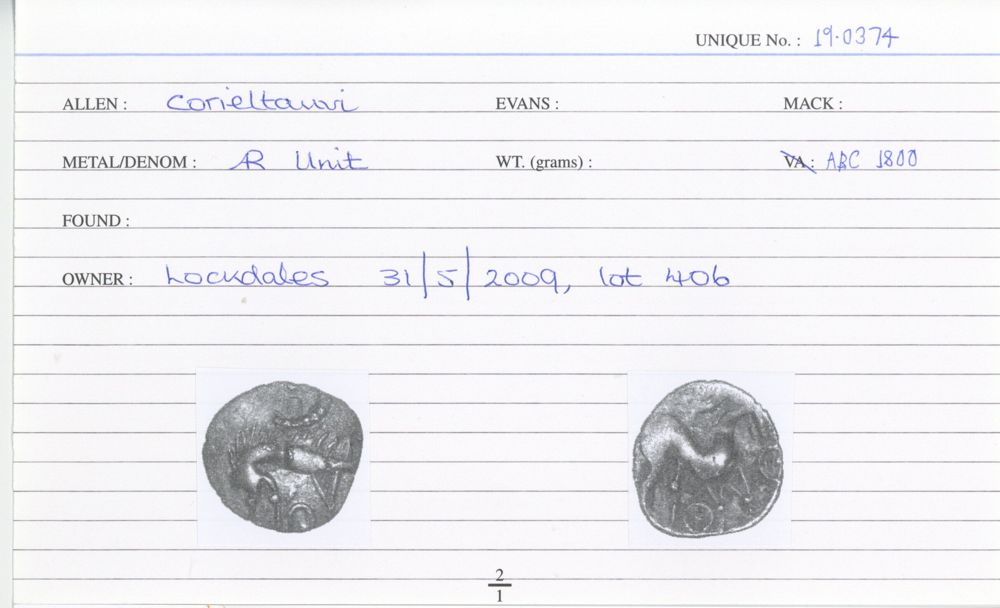 UNIQUE No. : 19.0374
ALLEN : Corieltauvi EVANS : MACK :
METAL/DENOM : AR Unit WT. (grams) : VA : ABC 1800
FOUND :
OWNER : Lockdales 31/5/2009, lot 406
2
1